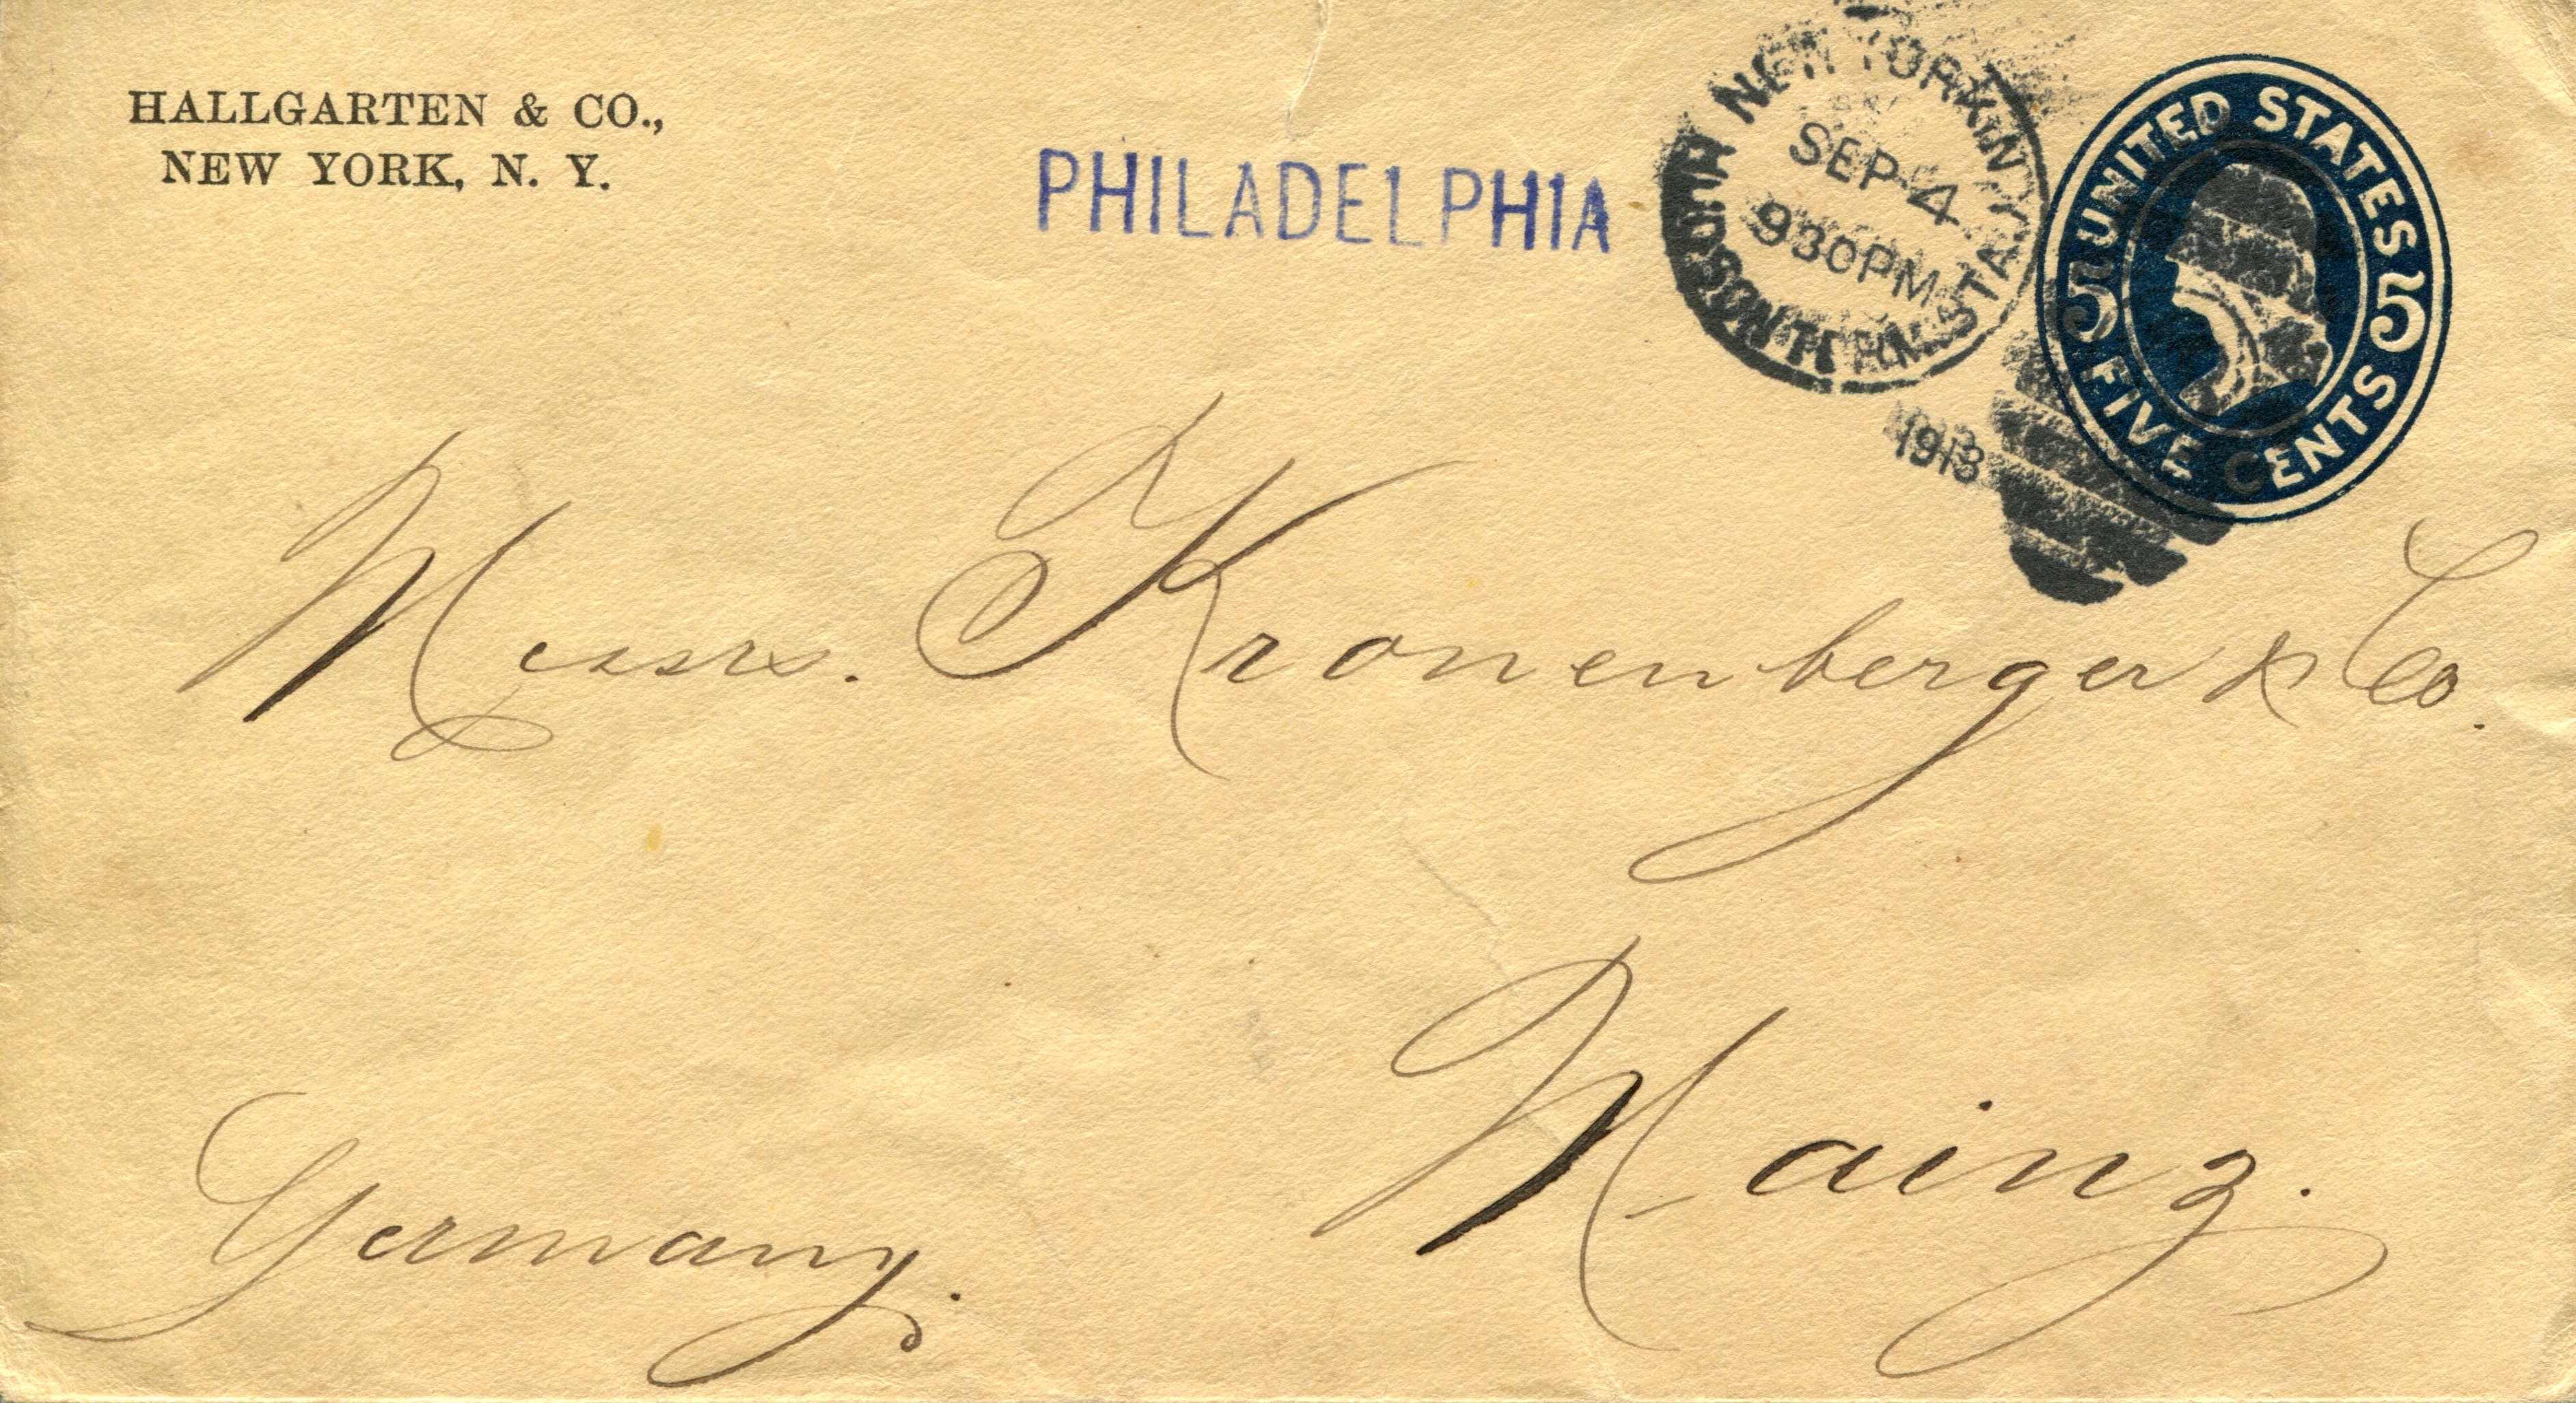 HALLGARTEN & CO.,
NEW YORK, N. Y.
PHILADELPHIA
NEW YORK, N.Y.
SEP 4
930PM
HUDSON TERM. STA.
1913
UNITED STATES
5 5
FIVE CENTS
Messrs. Kronenberger & Co.
Mainz.
Germany.